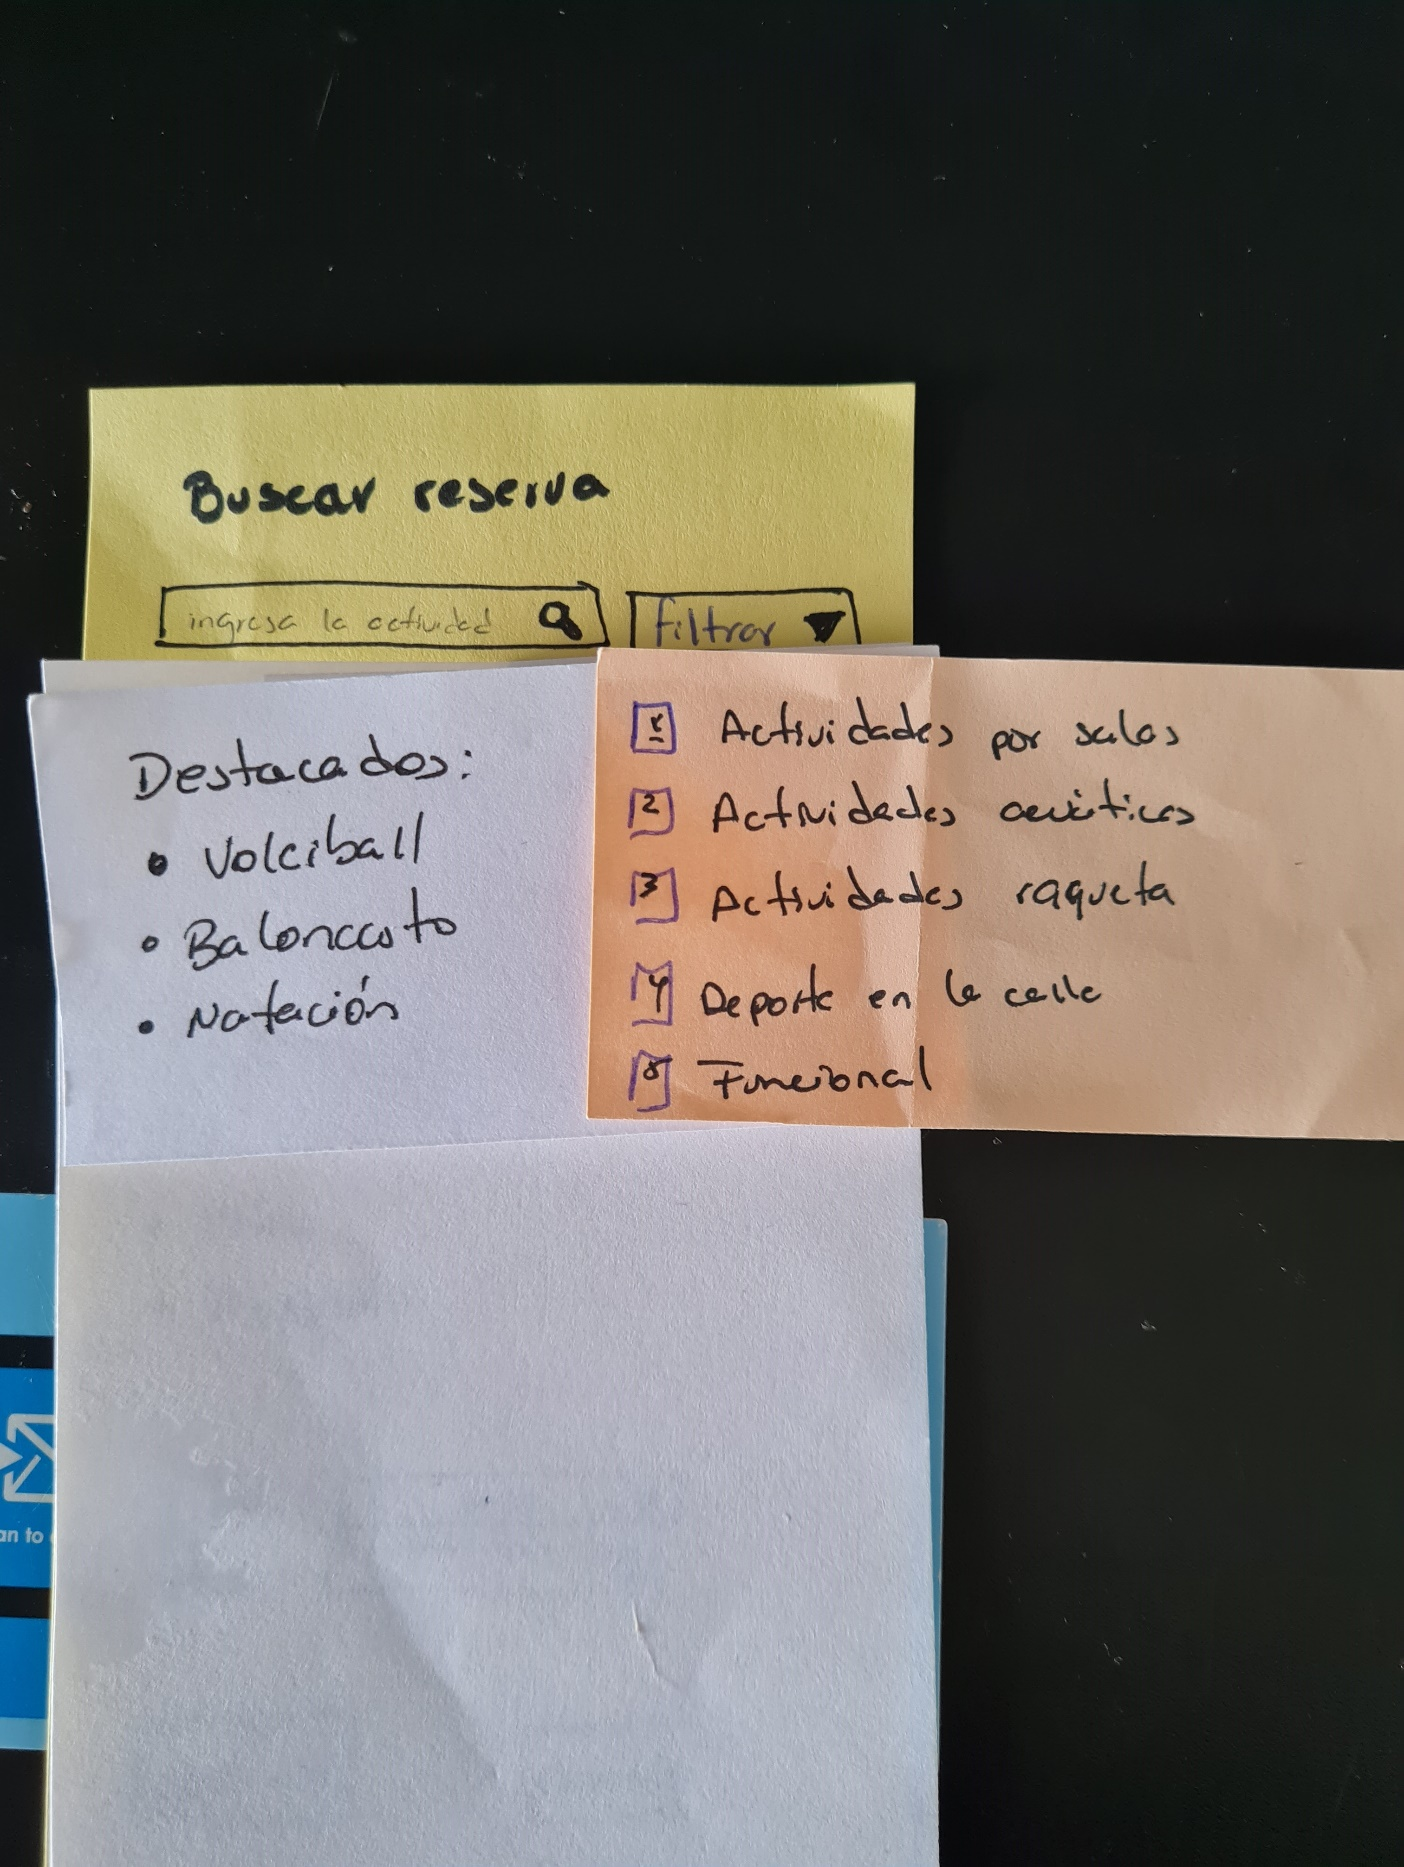 Buscar reserva
ingresa la actividad
filtrar
Destacados:
• Voleiball
• Baloncesto
• Natación
1 Actividades por salas
2 Actividades acuáticas
3 Actividades raqueta
4 Deporte en la calle
5 Funcional
an to